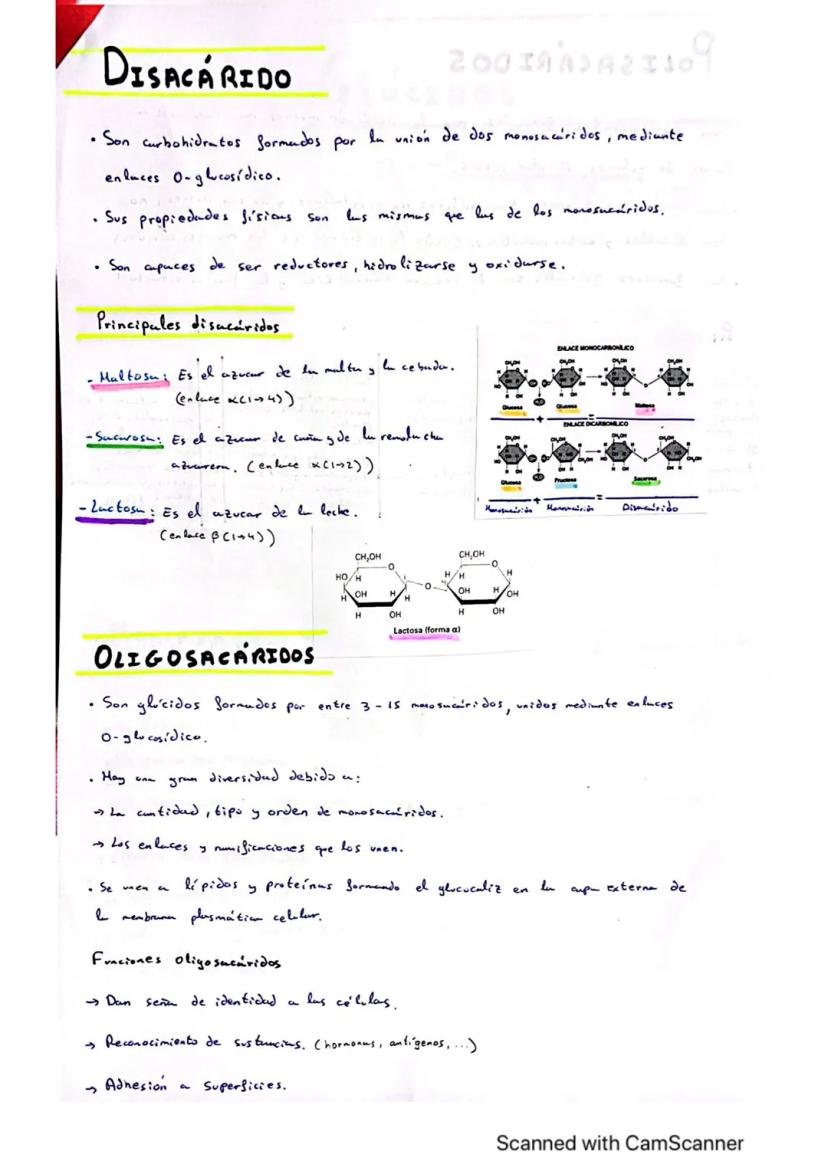 DISACÁRIDO
• Son carbohidratos formados por la unión de dos monosacáridos, mediante
enlaces O-glucosídico.
• Sus propiedades físicas son las mismas que las de los monosacáridos.
• Son capaces de ser reductores, hidrolizarse y oxidarse.
Principales disacáridos
- Maltosa: Es el azucar de la malta y la cebada.
(enlace α(1→4))
- Sacarosa: Es el azucar de caña y de la remolacha
azucarera. (enlace α(1→2))
- Lactosa: Es el azucar de la leche.
(enlace β(1→4))
ENLACE MONOCARBONÍLICO
Glucosa + Glucosa = Maltosa
ENLACE DICARBONÍLICO
Glucosa Fructosa Sacarosa
Monosacárido + Monosacárido = Disacárido
CH₂OH CH₂OH
HO H O H H O H
H OH H H O OH H OH
H OH H OH
Lactosa (forma α)
OLIGOSACÁRIDOS
• Son glúcidos formados por entre 3 - 15 monosacáridos, unidos mediante enlaces
O-glucosídico.
• Hay una gran diversidad debido a:
→ La cantidad, tipo y orden de monosacáridos.
→ Los enlaces y ramificaciones que los unen.
• Se unen a lípidos y proteínas formando el glucocaliz en la capa externa de
la membrana plasmática celular.
Funciones oligosacáridos
→ Dan seña de identidad a las células.
→ Reconocimiento de sustancias. (hormonas, antígenos, ...)
→ Adhesión a superficies.
Scanned with CamScanner